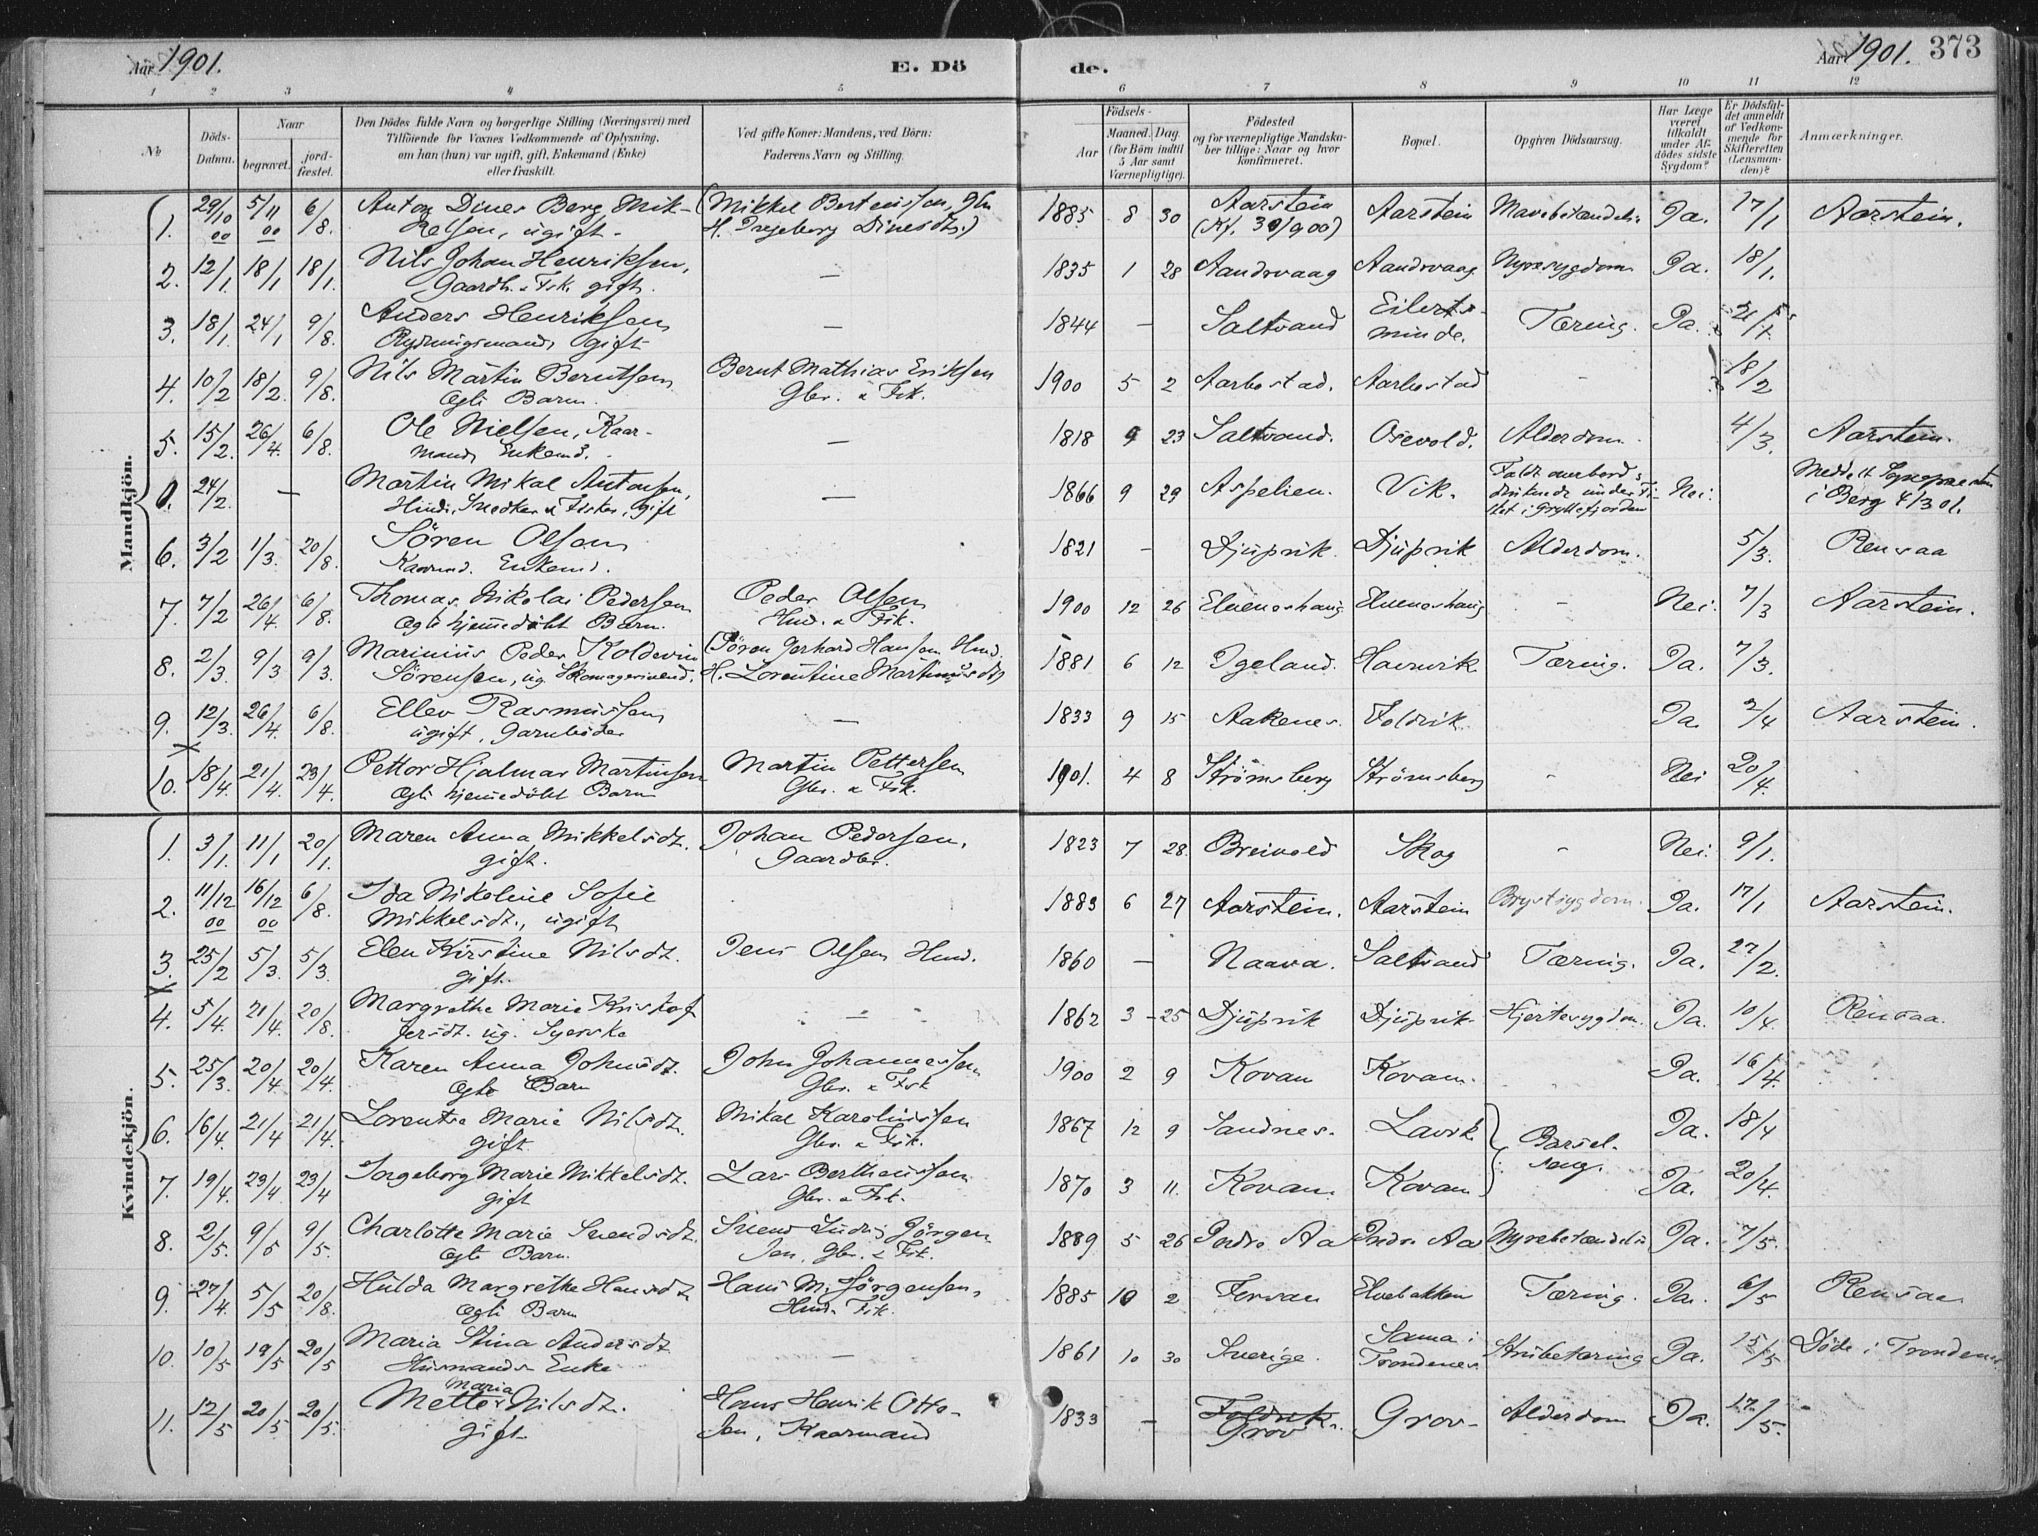 Aar 1901.
E. Dö
de.
Aar 1901. 373
1 2 3 4 5 6 7 8 9 10 11 12
No
Döds-Datum.
Naar
begravet.
jord-fæstet.
Den Dödes fulde Navn og borgerlige Stilling (Næringsvei) med
Tilföiende for Voxnes Vedkommende af Oplysning,
om han (hun) var ugift, gift, Enkemand (Enke)
eller fraskilt.
Ved gifte Koner: Mandens, ved Börn:
Faderens Navn og Stilling.
Födsels-
Aar
Maaned. Dag.
(for Börn indtil
5 Aar samt
Værnepligtige).
Födested
og for værnepligtige Mandska-
ber tillige: Naar og hvor
konfirmeret.
Bopæl.
Opgiven Dödsaarsag.
Har Læge
været
tilkaldt
under Af-
dödes sidste
Sygdom?
Er Dödsfal-
det anmeldt
af Vedkom-
mende for
Skifteretten
(Lensman-
den)?
Anmærkninger.
Mandkjön.
1. 29/10 00 5/11 00 6/8. Anton Dines Berg Mik- (Mikkel Berteussen, 1885 8 30 Aarstein Aarstein Mavebetændelse Ja. 17/1 Aarstein.
kelsen, ugift. H. Ingeborg Dinesdtr.) (Kf. 30/9 00)
2. 12/1. 18/1 18/1. Nils Johan Henriksen, — 1835 1 28 Aandsvaag Aandsvaag Nyresygdom Ja. 18/1.
Gaardb. & Fsk. gift.
3. 18/1. 24/1 9/8. Anders Henriksen — 1844 — Saltvand Eilerts- Tæring. Ja.
Rydningsmand, gift minde.
4. 10/2 18/2. 9/8. Nils Martin Berntsen Bernt Mathias Eriksen 1900 5 2 Aarbostad. Aarbostad - 18/2
Ægte Barn. Gbr. & Fsk.
5. 15/2. 26/4. 6/8. Ole Nielsen, Kaar- — 1818 9 23 Saltvand. Osevold. Alderdom. 4/3. Aarstein.
mand, Enkemd.
0. 24/2. — Martin Mikal Antonsen, — 1866 9 29 Aspelien. Vik. Faldt overbord & Nei. Medd. tt Sognepræsten
Hmd., Snedker & Fisker, gift druknede under Fi- i Berg 4/3 01.
sket i Gryllefjorden
6. 3/2 1/3. 20/8. Sören Olsen 1821 — Djupvik. Djupvik Alderdom. 5/3. Rensaa
Kaarmd. Enkemd.
7. 7/2 26/4. 6/8. Thomas Nikolai Pedersen Peder Olsen 1900 12 26 Elveneshaug Elveneshaug - Nei. 7/3 Aarstein.
Ægte hjemmedöbt Barn. Hmd. & Fsk.
8. 2/3. 9/3 9/3 Marinius Peder Koldevin (Sören Gerhard Hansen Hmd. 1881 6 12 Igeland. Havnvik Tæring. Ja. 7/3.
Sörensen, ug. Skomagersvend. H. Lorentine Martinusdtr)
9. 12/3. 26/4. 6/8. Ellev Rasmussen — 1833 9 15 Aakenes. Foldvik. Ja. 2/4 Aarstein.
ugift, Garnböder
10. 18/4. 21/4. 23/4. Petter Hjalmar Martinsen Martin Pettersen 1901. 4 8 Strömsberg Strömsberg - Nei 20/4.
Ægte hjemmedöbt Barn Gbr. & Fsk.
Kvindekjön.
1. 3/1. 11/1 20/1. Maren Anna Mikkelsdt. Johan Pedersen, 1823 7 28 Breivold Skog - Nei. 9/1.
gift. Gaardbr.
2. 11/12 00 16/12 00 6/8. Ida Nikoline Sofie 1883 6 27 Aarstein. Aarstein Brystsygdom. Ja. 17/1 Aarstein.
Mikkelsdt., ugift
3. 25/2 5/3. 5/3 Elen Kirstine Nilsdt. Jens Olsen Hmd. 1860 — Naava. Saltvand Tæring. Ja. 27/2.
gift.
4. 5/4. 21/4. 20/8. Margrethe Marie Kristof — 1862 3 25 Djupvik Djupvik Hjertesygdom. Ja. 10/4. Rensaa.
fersdt. ug. Syerske
5. 25/3. 20/4 20/4. Karen Anna Johnsdt. John Johannessen 1900 2 9 Kovan Kovan. Ja. 16/4.
Ægte Barn Gbr. & Fsk
6. 16/4. 21/4 21/4. Lorentse Marie Nilsdt. Mikal Karoliussen 1867 12 9 Sandnes. Lavik Barsel- Ja. 18/4
gift. Gbr. & Fsk.
7. 19/4. 23/4. 23/4 Ingeborg Marie Mikkelsdt. Lars Bertheussen 1870 3 11. Kovan. Kovan seng. Ja. 20/4.
gift Gbr. & Fsk.
8. 2/5. 9/5 9/5. Charlotte Marie Svendsdt. Svend Ludv. Jörgen 1889 5 26 Indre Aa Indre Aa Nyrebetændelse Ja. 7/5.
Ægte Barn. sen, Gbr. & Fsk.
9. 27/4. 5/5 20/8. Hulda Margrethe Hansdt. Hans M. Jörgensen, 1885 10 2 Forvan Elvebakken Tæring. Ja. 6/5 Rensaa
Ægte Barn Hmd. Fsk.
10. 10/5 19/5 20/5 Maria Stina Andersdt. — 1861 10 30 Sverige. Sama i Strubetæring Ja. 15/5 Döde i Trondenes
Husmands Enke Trondenes
11. 12/5 20/5. 20/5. Mette Maria Nilsdt. Hans Henrik Otto- 1833 — Foldvik. Grov Grov Alderdom Ja. 17/5.
gift. sen, Kaarmand